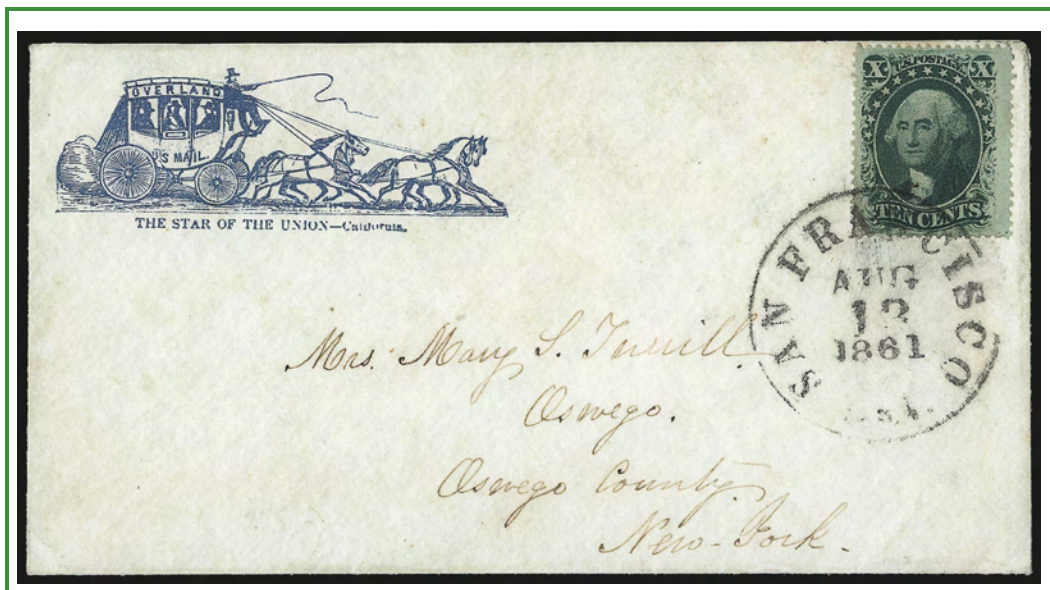 OVERLAND
U.S MAIL.
THE STAR OF THE UNION—California.
X U.S. POSTAGE X
TEN CENTS
SAN FRANCISCO
AUG
13
1861
Mrs. Mary S. Turrill
Oswego.
Oswego County
New-York.